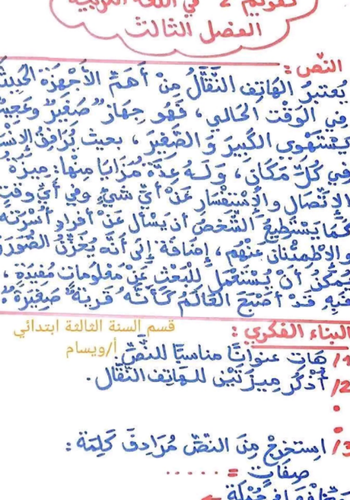 تقويم 2 في اللغة العربية
الفصل الثالث
النص :
يُعتبرُ الهَاتِفُ النَّقَّالُ مِنْ أَهَمِّ الأَجْهِزَةِ
فِي الوَقْتِ الحَالِي، فَهُوَ جِهَازٌ صَغِيرٌ
يَسْتَهْوِي الكَبِيرَ وَ الصَّغِيرَ، بحيث يُرَافِقُ
فِي كُلِّ مَكَانٍ، وَلَهُ عِدَّةُ مَزَايَا مِنْهَا: مِيزَةُ
الاِتِّصَالِ وَالاِسْتِفْسَارِ عَنْ أَيِّ شَيْءٍ وَفِي أَيِّ وَقْتٍ
كَمَا يَسْتَطِيعُ الشَّخْصُ أَنْ يَسْأَلَ عَنْ أَفْرَادِ أُسْرَتِهِ
وَالاِطْمِئْنَانَ عَنْهُمْ، إِضَافَةً إِلَى أَنَّهُ يُخَزِّنُ الصُّوَرَ
يُمْكِنُ أَنْ يُسْتَعْمَلَ لِلْبَحْثِ عَنْ مَعْلُومَاتٍ مُفِيدَةٍ،
فَبِهِ قَدْ أَصْبَحَ العَالَمُ كَأَنَّهُ قَرْيَةٌ صَغِيرَةٌ.
قسم السنة الثالثة ابتدائي
أ/ويسام
البناء الفكري :
1/ هَاتِ عُنْوَانًا مُنَاسِبًا لِلنَّصِّ.
2/ أُذْكُرْ مِيزَتَيْنِ لِلْهَاتِفِ النَّقَّالِ.
3/ اِسْتَخْرِجْ مِنَ النَّصِّ مُرَادِفَ كَلِمَةِ :
صِفَاتٍ = ......